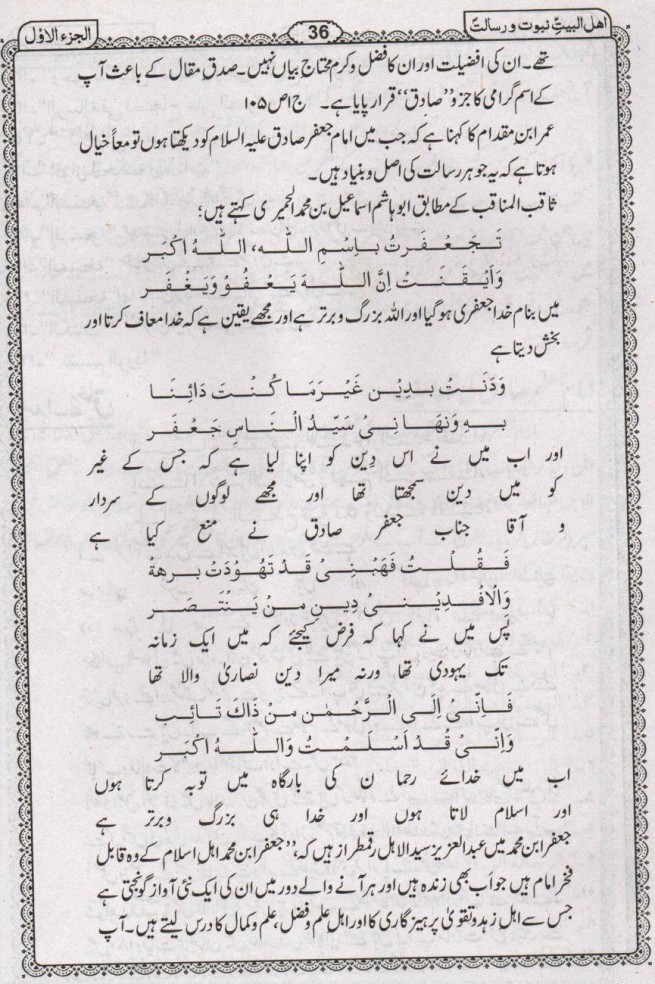 اهل البيتؑ نبوت و رسالتؐ
36
الجزء الاوّل
تھے۔ ان کی افضلیت اور ان کا فضل و کرم محتاج بیاں نہیں۔ صدق مقال کے باعث آپ
کے اسم گرامی کا جزو ”صادق“ قرار پایا ہے۔ ج۱ ص ۱۰۵
عمر ابنِ مقدام کا کہنا ہے کہ جب میں امام جعفر صادق علیہ السلام کو دیکھتا ہوں تو معاً خیال
ہوتا ہے کہ یہ جوہر رسالت کی اصل و بنیاد ہیں۔
ثاقب المناقب کے مطابق ابو ہاشم اسماعیل بن محمد الحمیری کہتے ہیں:
تَجَعْفَرَتُ بِاِسْمِ اللّٰه، اللّٰهُ اکْبَر
وَاَیْقَنَتُ اِنَّ اللّٰهَ یَعْفُوْ وَیَغْفَر
میں بنام خدا جعفری ہو گیا اور اللہ بزرگ و برتر ہے اور مجھے یقین ہے کہ خدا معاف کرتا اور
بخش دیتا ہے
وَدَنَتُ بِدِیْن غَیْرَ مَا کُنُتَ دَائِنَا
بِهِ وَنَهَانِیْ سَیّدُ النَاسِ جَعْفَر
اور اب میں نے اس دِین کو اپنا لیا ہے کہ جس کے غیر
کو میں دین سمجھتا تھا اور مجھے لوگوں کے سردار
و آقا جناب جعفر صادق نے منع کیا ہے
فَقُلتُ فَهَبْنِیْ قدُ تَهوّدَتُ برهةُ
وَالْافُدِیْنِیْ دِینِ منْ یَنُتَصَر
پس میں نے کہا کہ فرض کیجئے کہ میں ایک زمانہ
تک یہودی تھا ورنہ میرا دین نصاریٰ والا تھا
فَاِنّیْ اِلی الْرَّحْمٰن منْ ذَاكَ تَائِب
وَاِنّیْ قُدُ اَسْلَمْتُ وَاللّهُ اکْبَر
اب میں خدائے رحما ن کی بارگاہ میں توبہ کرتا ہوں
اور اسلام لاتا ہوں اور خدا ہی بزرگ وبرتر ہے
جعفر ابن محمد میں عبدالعزیز سید الاہل رقمطراز ہیں کہ، ”جعفر ابن محمد اہل اسلام کے وہ قابل
فخر امام ہیں جو اَب بھی زندہ ہیں اور ہر آنے والے دور میں ان کی ایک نئی آواز گونجتی ہے
جس سے اہلِ زہد و تقویٰ پرہیز گاری کا اور اہلِ علم و فضل، علم و کمال کا درس لیتے ہیں۔ آپ